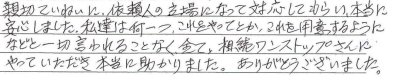 親切でていねいに、依頼人の立場になって対応してもらい、本当に
安心しました。私達は何一つ、これをやってとか、これを用意するように
などと一切言われることなく全て、相続ワンストップさんに
やっていただき本当に助かりました。ありがとうございました。